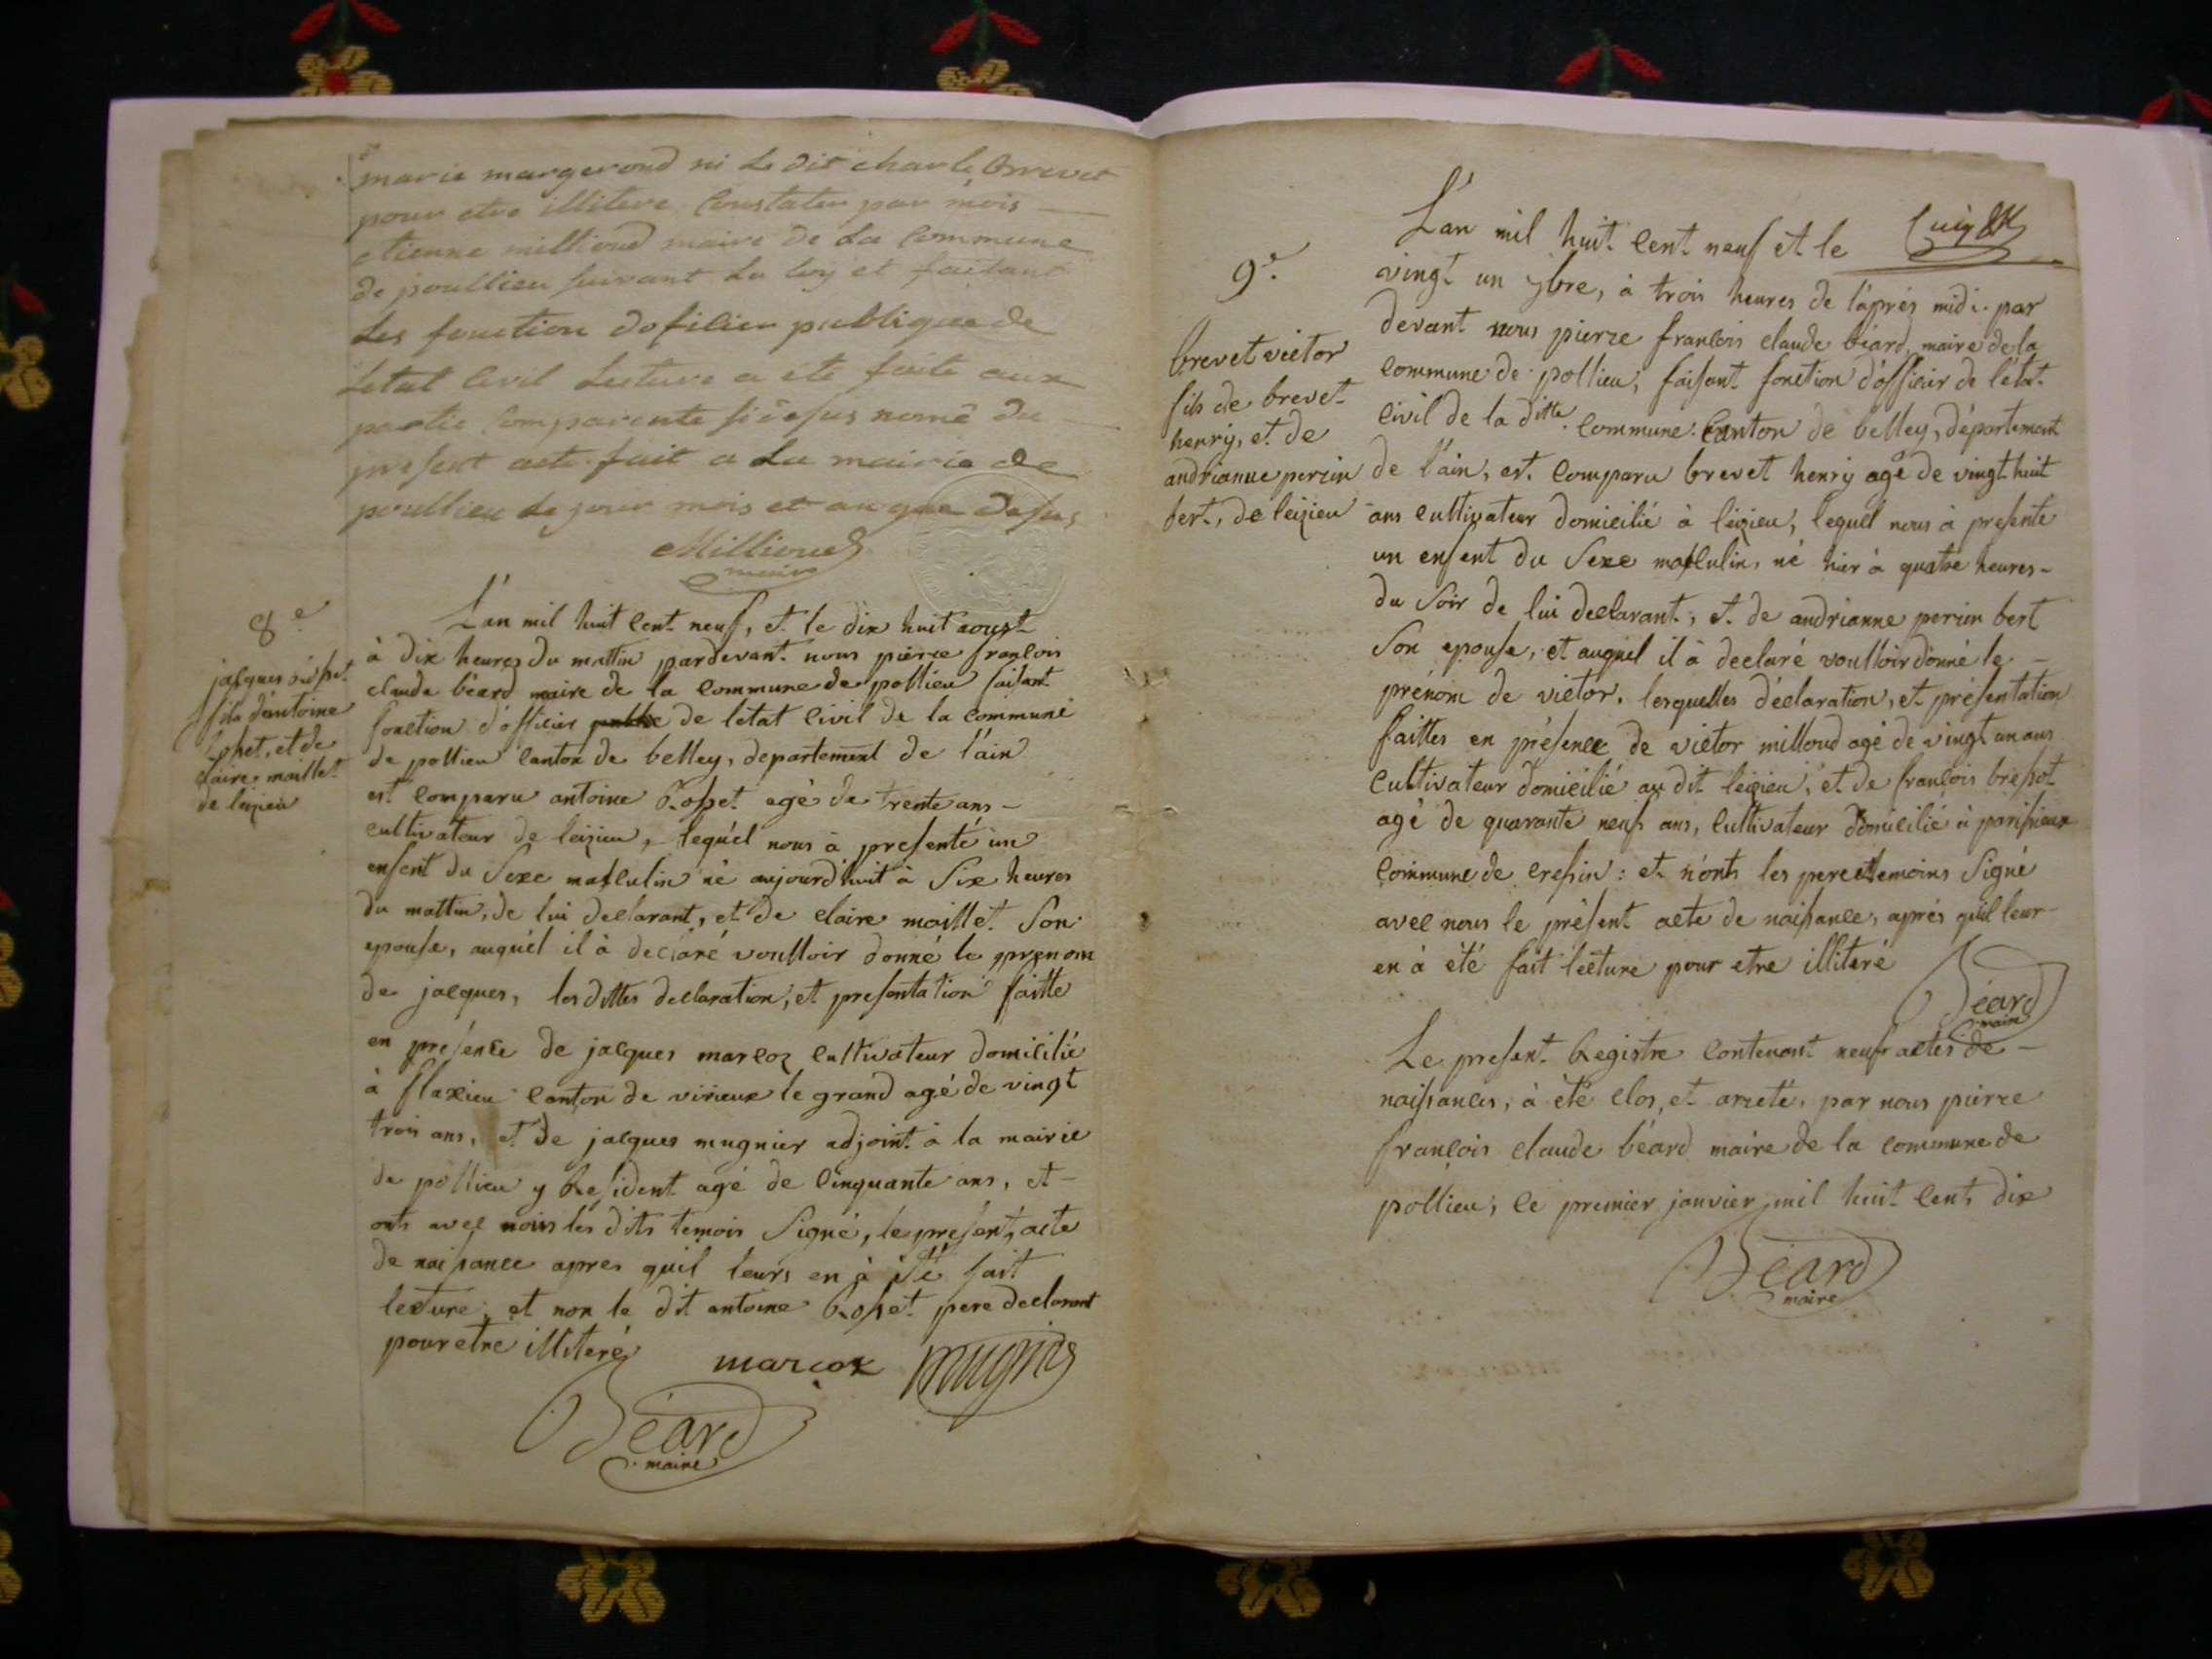 marie margerond ni Le dit charle Brevet
pour etre illitere Constater par mois
etienne millioud maire de La Commune
de poullieu suivant La loy et faisant
Les fonction dofisier publique de
Letat Civil Lecture a ete faite aux
partie Comparente si desus nomé du
present acte. fait a La mairie de
poullieu Le jour mois et an que desus
Millioud
maire
8e
jacques
fils d'antoine
et de
claire maillet
de leizieu
L'an mil huit cent neuf, et le dix huit aoust
à dix heures du mattin pardevant nous pierre françois
claude béard maire de la commune de pollieu faisant
fonction d'officier de letat civil de la commune
de pollieu canton de belley, departement de l'ain
est comparu antoine Rosset agé de trente ans -
cultivateur de leizieu, lequel nous à presenté un
enfent du sexe masculin né aujourd'huit à six heures
du mattin, de lui declarant, et de claire maillet son
epouse, auquel il à declaré voulloir donné le prenom
de jacques, les dittes declaration, et presentation faitte
en présence de jacques marcoz cultivateur domicilié
à flaxieu canton de virieux le grand agé de vingt
trois ans, et de jacques mugnier adjoint à la mairie
de pollieu y Resident agé de cinquante ans, et -
onts avec nous les dits temois signé, le present, acte
de naissance apres quil leurs en à été fait
lecture, et non le dit antoine Rosset pere declarant
pour etre illiteré
marcoz mugnier
Béard
maire
L'an mil huit cent neuf et le
9e
vingt un 7bre, à trois heures de l'aprés midi. par
devant nous pierre françois claude béard, maire de la
commune de pollieu, faisant fonction d'officier de l'état
civil de la ditte commune. Canton de belley, département
de l'ain, est comparu brevet henry agé de vingt huit
ans cultivateur domicilié à leizieu, lequel nous à presente
un enfent du sexe masculin, né hier à quatre heures -
du soir de lui declarant, et de andrianne perrin bert
son epouse, et auquel il à declaré voulloir donné le -
prénom de victor. lesquelles déclaration, et présentation
faittes en présence de victor milloud agé de vingt un ans
cultivateur domicilié au dit leizieu, et de françois brissot
agé de quarante neuf ans, cultivateur domicilié à parissieux
commune de cressin : et n'onts les pere et temoins signé
avec nous le présent acte de naissance, aprés quil leur
en à été fait lecture pour etre illiteré
Béard
maire
brevet victor
fils de brevet
henry, et de
andrianne perrin
bert, de leizieu
Le present Registre contenant neuf actes de -
naissances, à été clos, et arreté, par nous pierre
françois claude béard maire de la commune de
pollieu, ce premier janvier mil huit cent dix
Béard
maire